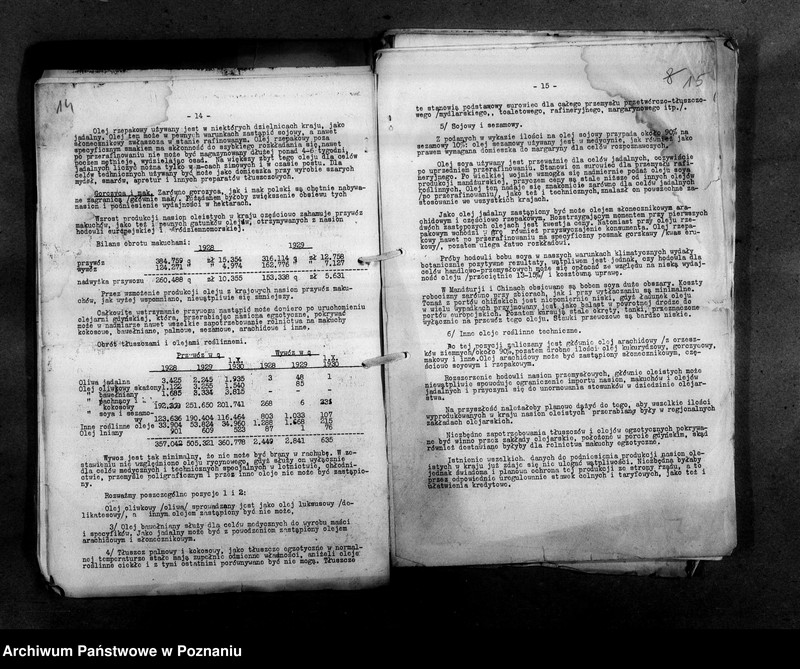 14
- 14 -
Olej rzepakowy używany jest w niektórych dzielnicach kraju, jako
jadalny. Olej ten może w pewnych warunkach zastąpić sojowy, a nawet
słonecznikowy zwłaszcza w stanie rafinowanym. Olej rzepakowy poza
specyficznym smakiem ma skłonność do szybkiego rozkładania się, nawet
po przerafinowaniu nie może być magazynowany dłużej ponad 4-6 tygodni,
bowiem mętnieje, wydzielając osad. Na większy zbyt tego oleju dla celów
jadalnych liczyć można tylko w m-cach zimowych i w czasie postu. Dla
celów technicznych używany być może jako domieszka przy wyrobie szarych
mydeł, smarów, apretur i innych preparatów tłuszczowych.
Gorczyca i mak. Zarówno gorczyca, jak i mak polski są chętnie nabywa-
ne zagranicą /głównie mak/. Pożądanem byłoby zwiększenie obsiewu tych
nasion i podniesienie wydajności w hektarach.
Wzrost produkcji nasion oleistych w kraju częściowo zahamuje przywóz
makuchów, jako też i pewnych gatunków oleju, otrzymywanych z nasion
hodowli europejskiej i śródziemnomorskiej.
Bilans obrotu makuchami:
1928 1929
przywóz 384.759 q zł 15.354 316.114 q zł 12.758
wywóz 124.271 " " 4.974 162.776 " " 7.127
nadwyżka przywozu 260.488 q zł 10.355 153.338 q zł 5.631
Przez wzmożenie produkcji oleju z krajowych nasion przywóz maku-
chów, jak wyżej wspomniano, niewątpliwie się zmniejszy.
Całkowite wstrzymanie przywozu nastąpić może dopiero po uruchomieniu
olejarni gdyńskiej, która, przerabiając nasiona egzotyczne, pokrywać
może w nadmiarze nawet wszelkie zapotrzebowanie rolnictwa na makuchy
kokosowe, bawełniane, palmowe, sezamowe, arachidowe i inne.
Obrót tłuszczami i olejami roślinnemi.
Przywóz w q Wywóz w q
1928 1929 1930 1928 1929 1930
Oliwa jadalna 3.425 2.245 1.935 3 48 1
Olej oliwkowy skażony 3.255 1.540 85
" bawełniany 1.685 2.334 3.815
" palmowy i -
kokosowy 251.650 201.741 268 6
" soya i sezamo-
wy 123.636 190.404 116.464 803 1.033 107
Inne roślinne oleje 33.904 53.824 34.960 1.288 215
Olej lniany 901 609 523 87 1 76
357.042 505.321 360.778 2.449 2.841 635
Wywóz jest tak minimalny, że nie może być brany w rachubę. W ze-
stawieniu nie uwzględniono oleju rycynowego, gdyż służy on wyłącznie
dla celów medycznych i technicznych specjalnych w lotnictwie, chłodni-
ctwie, przemyśle poligraficznym i przez inne oleje nie może być zastąpio-
ny.
Rozważmy poszczególne pozycje 1 i 2:
Olej oliwkowy /oliwa/ sprowadzany jest jako olej luksusowy /de-
likatesowy/, a innym olejem zastąpiony być nie może.
3/ Olej bawełniany służy dla celów medycznych do wyrobu maści
i specyfików. Jako jadalny może być z powodzeniem zastąpiony olejem
arachidowym i słonecznikowym.
4/ Tłuszcz palmowy i kokosowy, jako tłuszcze egzotyczne w normal-
nej temperaturze stałe mają zupełnie odmienne własności, aniżeli oleje
roślinne ciekłe i z tymi ostatnimi porównywane być nie mogą. Tłuszcze
8 15
- 15 -
te stanowią podstawowy surowiec dla całego przemysłu przetwórczo-tłuszczo-
wego /mydlarskiego, toaletowego, rafineryjnego, margarynowego itp./.
5/ Sojowy i sezamowy.
Z podanych w wykazie ilości na olej sojowy przypada około 90% na
sezamowy 10%; olej sezamowy używany jest w medycynie, jak również jako
prawem wymagana domieszka do margaryny dla celów rozpoznawczych.
Olej soya używany jest przeważnie dla celów jadalnych, oczywiście
po uprzedniem przerafinowaniu. Stanowi on surowiec dla przemysłu rafi-
neryjnego. Po wielkiej wojnie wzmogła się nadmiernie podaż oleju soya
produkcji mandżurskiej, przyczem ceny są stale niższe od innych olejów
roślinnych. Olej ten nadaje się znakomicie zarówno dla celów jadalnych
/po przerafinowaniu/, jako też i technicznych, znalazł on powszechne za-
stosowanie we wszystkich krajach.
Jako olej jadalny zastąpiony być może olejem słonecznikowym ara-
chidowym i częściowo rzepakowym. Rozstrzygającym momentem przy pierwszych
dwóch zastępczych olejach jest kwestja ceny. Natomiast przy oleju rze-
pakowym wchodzi w grę również przyzwyczajenie konsumenta. Olej rzepa-
kowy nawet po przerafinowaniu ma specyficzny posmak gorzkawy /kwas eru-
kowy/, pozatem ulega łatwo rozkładowi.
Próby hodowli bobu soya w naszych warunkach klimatycznych wydały
botanicznie pozytywne rezultaty, wątpliwem jest jednak, czy hodowla dla
celów handlowo-przemysłowych może się opłacać ze względu na niską wydaj-
ność oleju /przeciętnie 12-15%/ i kosztowną uprawę.
W Mandżurji i Chinach obsiewane są bobem soya duże obszary. Koszty
robocizny zarówno przy zbiorach, jak i przy wytłaczaniu są minimalne.
Fracht z portów chińskich jest niepomiernie niski, gdyż ładunek oleju
w wielu wypadkach przyjmowany jest, jako balast w powrotnej drodze do
portów europejskich. Pozatem kursują stale okręty, tanki, przeznaczone
wyłącznie na przewóz tego oleju. Stawki przewozowe są bardzo niskie.
6/ Inne oleje roślinne techniczne.
Do tej pozycji zaliczony jest głównie olej arachidowy /z orzesz-
ków ziemnych/około 90%, pozatem drobne ilości olej kukurydzowy, gorczycowy,
makowy i inne. Olej arachidowy może być zastąpiony słonecznikowym, czę-
ściowo soyowym i rzepakowym.
Rozszerzenie hodowli nasion przemysłowych, głównie oleistych może
niewątpliwie spowoduje ograniczenie importu nasion, makuchów i olejów
jadalnych i przyczyni się do unormowania stosunków w dziedzinie olejar-
stwa.
Na przyszłość należałoby planowo dążyć do tego, aby wszelkie ilości
wyprodukowanych w kraju nasion oleistych przerabiany były w rejonjalnych
zakładach olejarskich.
Niezbędne zapotrzebowania tłuszczów i olejów egzotycznych pokrywa-
ne być winno przez zakłady olejarskie, położone w porcie gdyńskim, skąd
również dostawiane byłyby dla rolnictwa makuchy egzotyczne.
Istnienie wszelkich danych do podniesienia produkcji nasion ole-
istych w kraju już zdaje się nie ulegać wątpliwości. Niezbędna byłaby
jednak świadoma i planowa ochrona tej produkcji ze strony rządu, a to
przez odpowiednie uregulowanie stawek celnych i taryfowych, jako też i
ułatwienia kredytowe.
Archiwum Państwowe w Poznaniu